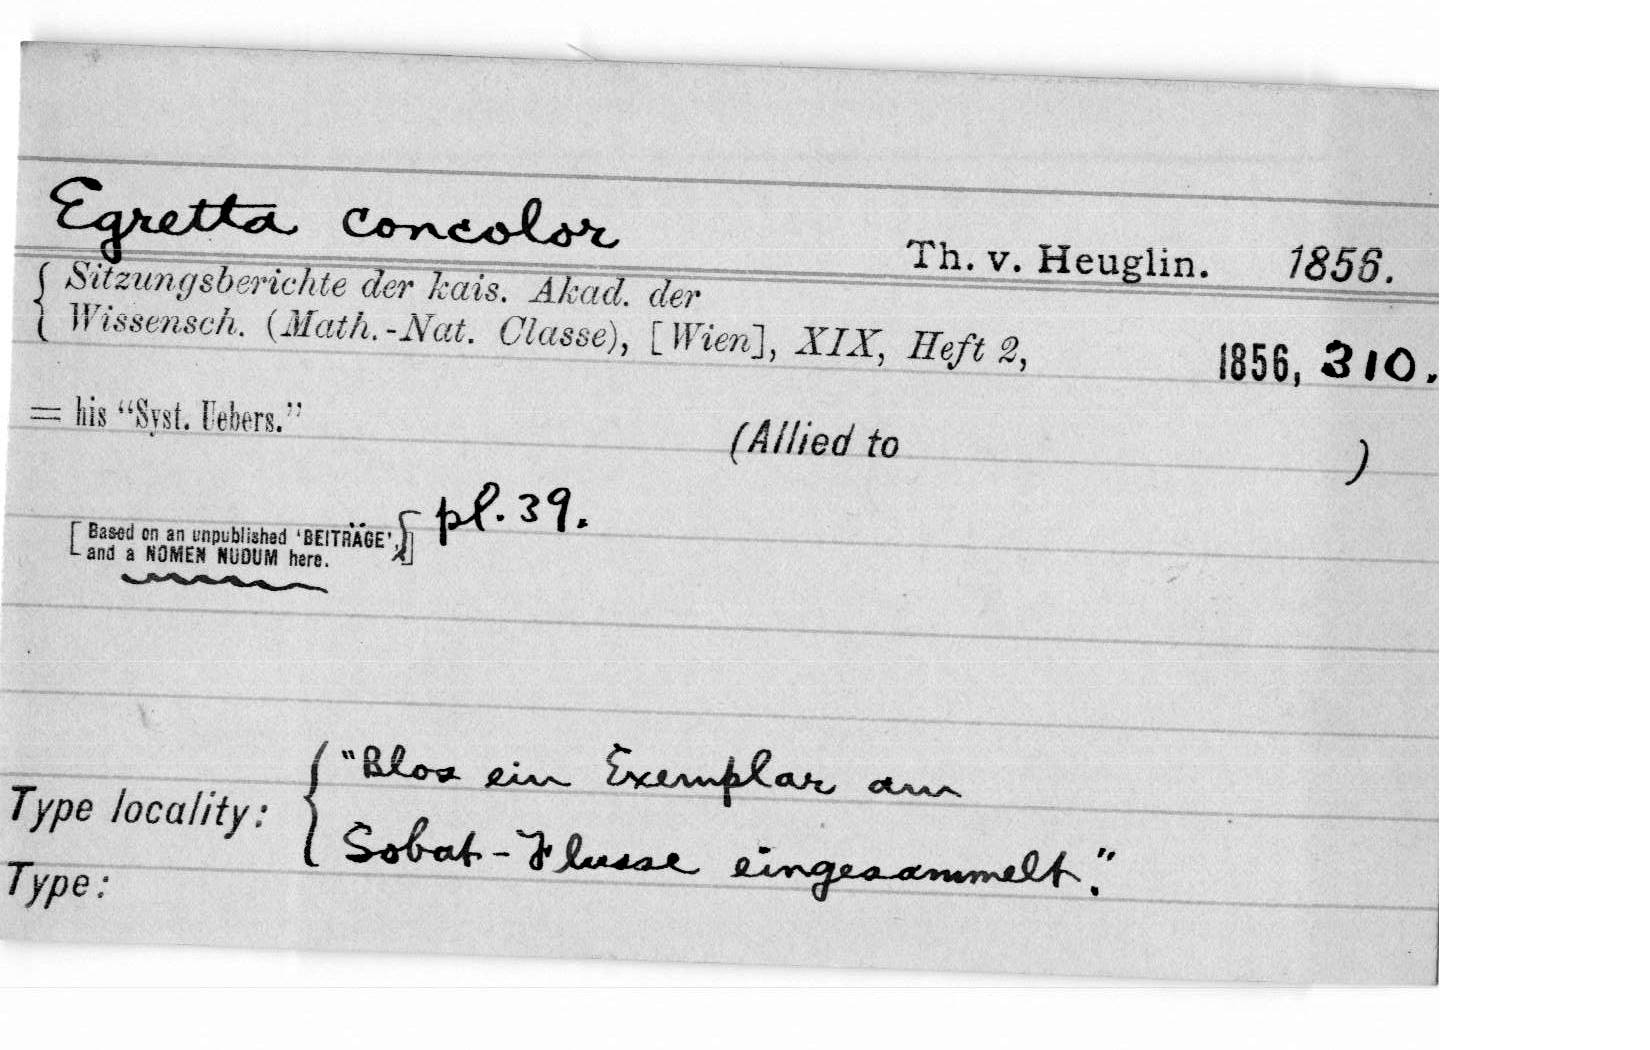 Egretta concolor Th. v. Heuglin. 1856.
{ Sitzungsberichte der kais. Akad. der
Wissensch. (Math.-Nat. Classe), [Wien], XIX, Heft 2, 1856, 310.
= his “Syst. Uebers.”
(Allied to )
[Based on an unpublished ‘BEITRÄGE’, } pl. 39.
and a NOMEN NUDUM here.]
Type locality: { "Blos ein Exemplar am
Sobat-Flusse eingesammelt."
Type: